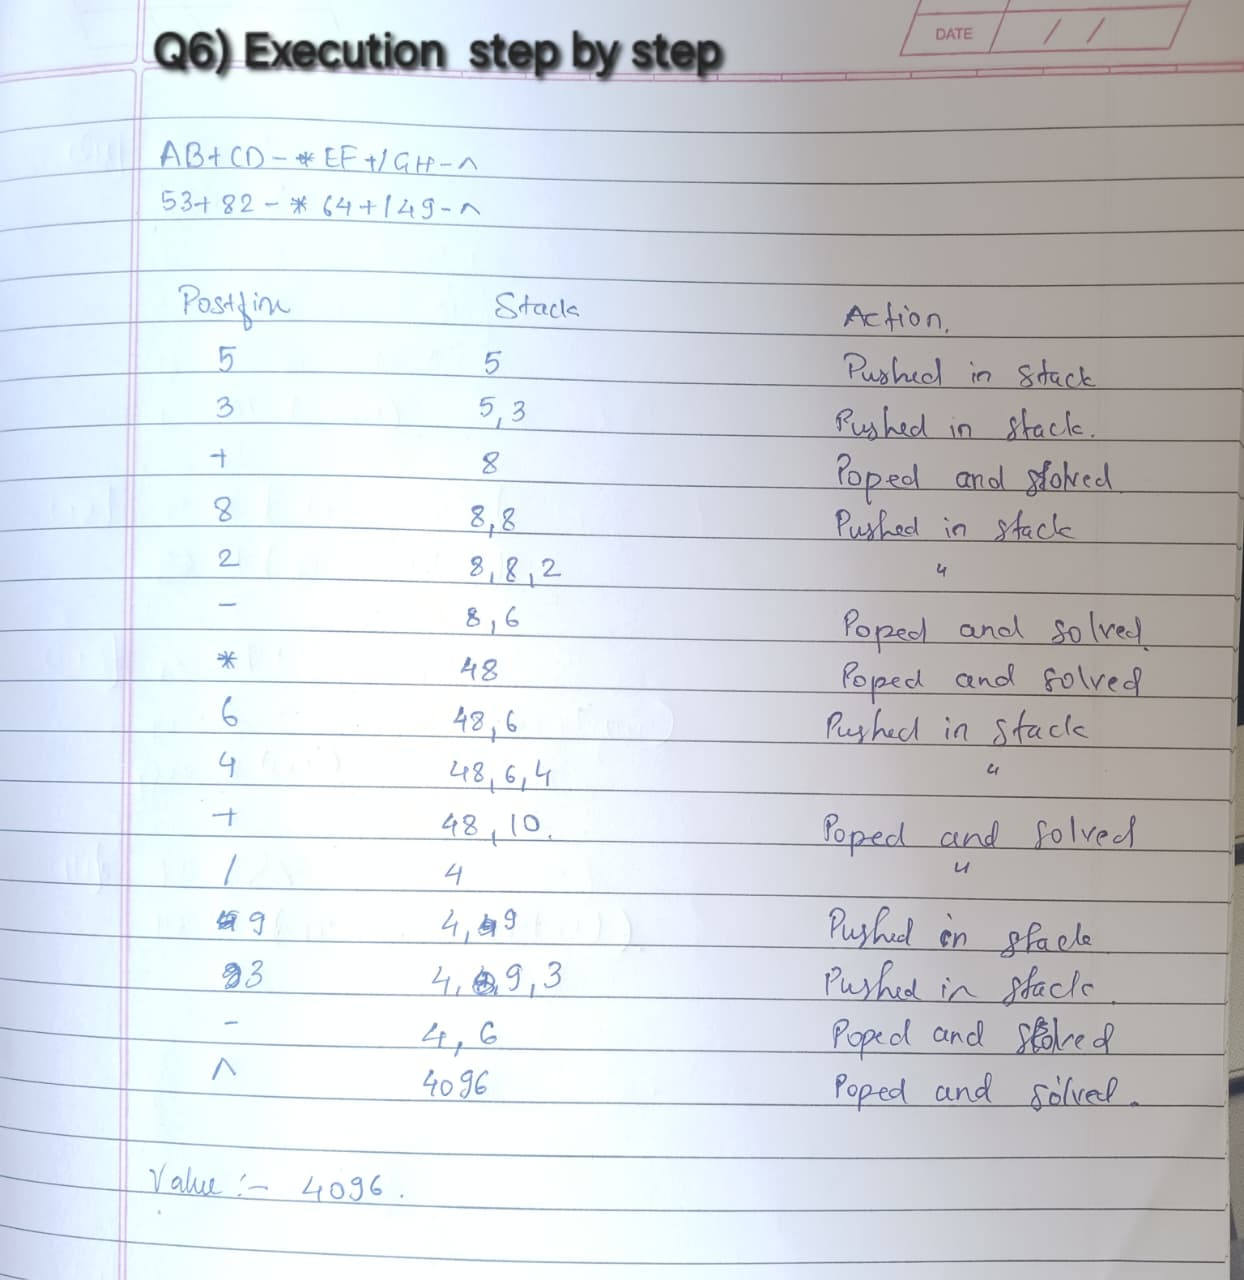 DATE / /
Q6) Execution step by step
AB+CD-*EF+/GH-^
53+82-*64+/49-^
Postfix Stack Action.
5 5 Pushed in stack
3 5,3 Pushed in stack.
+ 8 Poped and solved
8 8,8 Pushed in stack
2 8,8,2 "
- 8,6 Poped and solved.
* 48 Poped and solved
6 48,6 Pushed in stack
4 48,6,4 "
+ 48,10. Poped and solved
/ 4 "
9 4,9 Pushed in stack
3 4,9,3 Pushed in stack.
- 4,6 Poped and solved
^ 4096 Poped and solved.
Value :- 4096.